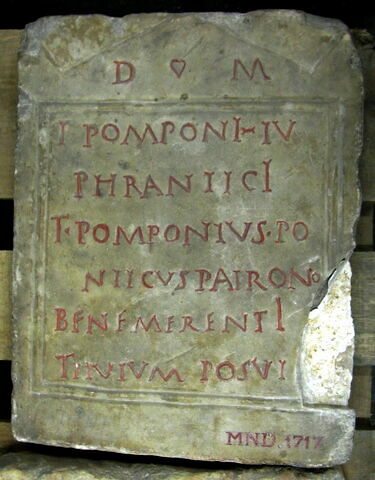 D ♡ M
T POMPONI IV
PHRANIICI
T·POMPONIVS·PO
NIICVSPATRONO
BENEMERENTI
TITVIVM POSVI
MND. 1717